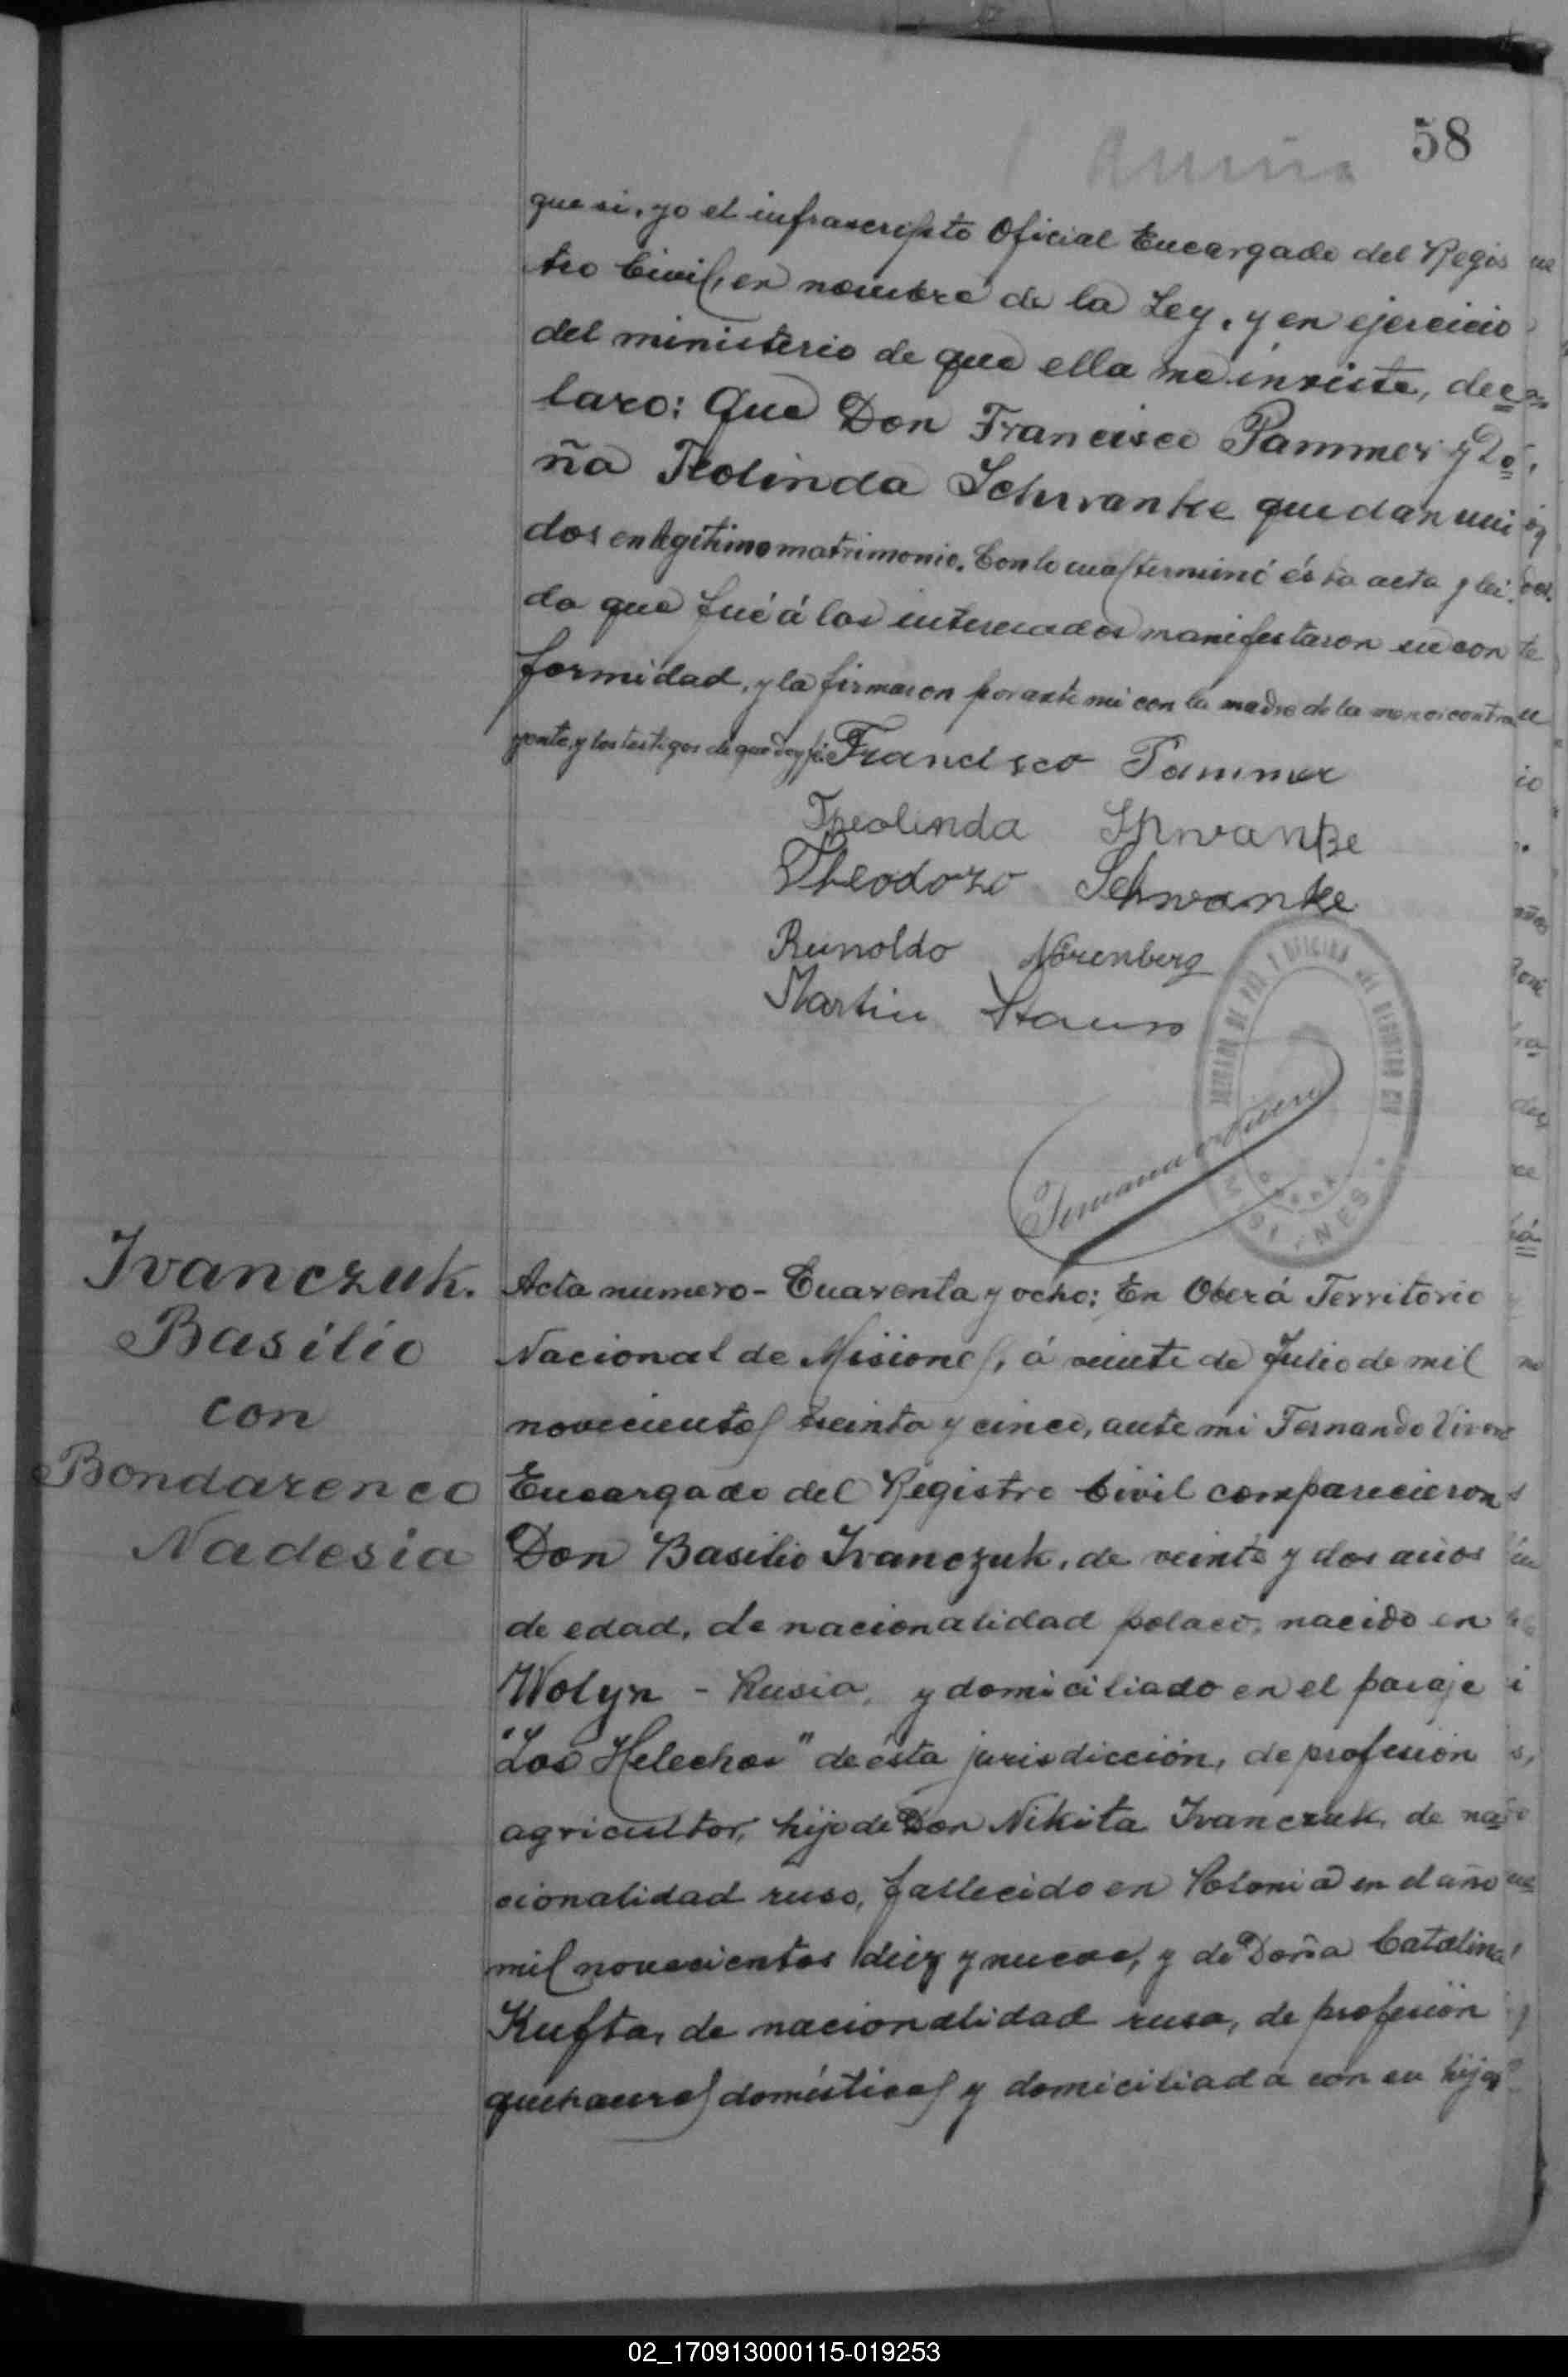 58
que si, yo el infrascripto Oficial Encargado del Regis
tro Civil, en nombre de la Ley, y en ejercicio
del ministerio de que ella me inviste, dec
laro: Que Don Francisco Pammer y Do
ña Teolinda Schwanke quedan uni
dos en legítimo matrimonio. Con lo cual terminó ésta acta y leí
da que fué á los interesados manifestaron su con
formidad, y la firmaron por ante mi con la madre de la menor contra
yente, y los testigos de que doy fé. Francisco Pammer
Theolinda Shwanke
Theodoro Schwanke
Reinoldo Nörenberg
Martin
JUZGADO DE PAZ Y OFICINA DEL REGISTRO CIV
MISIONES
Ivanczuk.
Basilio
con
Bondarenco
Nadesia
Acta numero - Cuarenta y ocho: En Oberá Territorio
Nacional de Misiones, á veinte de Julio de mil
novecientos treinta y cinco, ante mi Fernando Vivero
Encargado del Registro Civil comparecieron
Don Basilio Ivanczuk, de veinte y dos años
de edad, de nacionalidad polaco, nacido en
Wolyn - Rusia, y domiciliado en el paraje
"Los Helechos" de ésta jurisdicción, de profesión
agricultor, hijo de Don Nikita Ivanczuk, de na
cionalidad ruso, fallecido en Polonia en el año
mil novecientos diez y nueve, y de Doña Catalina
Kufta, de nacionalidad rusa, de profesión
quehaceres domésticos y domiciliada con su hijo
02_170913000115-019253